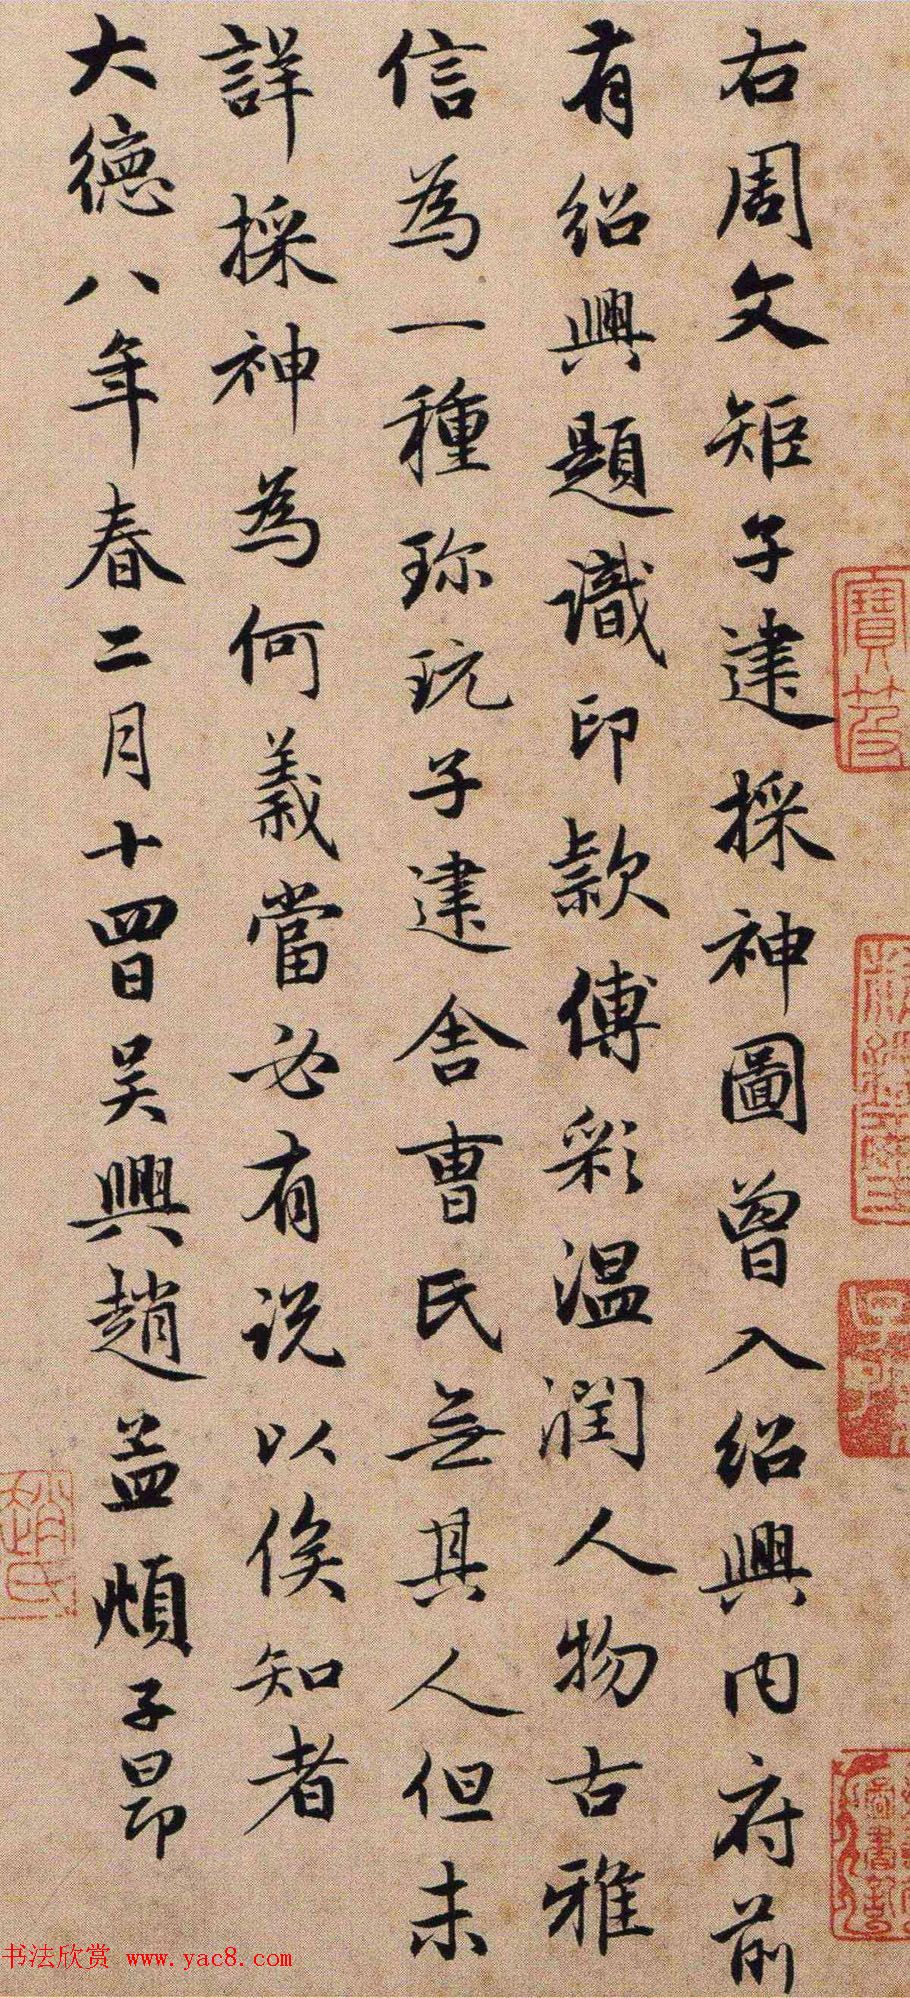 右周文矩子建採神圖曾入紹興内府前
有紹興題識印款傅彩温潤人物古雅
信為一種珎玩子建舍曹氏無其人但未
詳採神為何義當必有説以俟知者
大德八年春二月十四日吴興趙孟頫子昂
寶笈
趙氏
书法欣赏 www.yac8.com